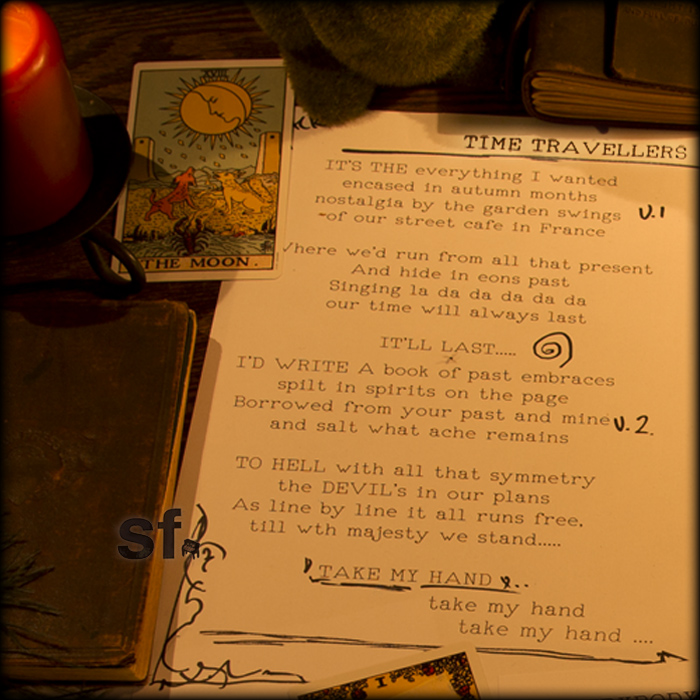 XVIII
THE MOON.
TIME TRAVELLERS
IT'S THE everything I wanted
encased in autumn months
nostalgia by the garden swings
of our street cafe in France
v.1
Where we'd run from all that present
And hide in eons past
Singing la da da da da da
our time will always last
IT'LL LAST.....
I'D WRITE A book of past embraces
spilt in spirits on the page
Borrowed from your past and mine
and salt what ache remains
v.2.
TO HELL with all that symmetry
the DEVIL's in our plans
As line by line it all runs free.
till wth majesty we stand.....
TAKE MY HAND
take my hand
take my hand ....
sf